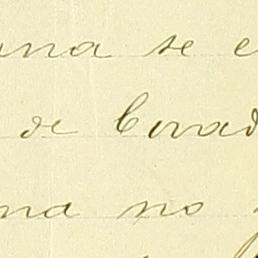 una se e
de Covad
na no